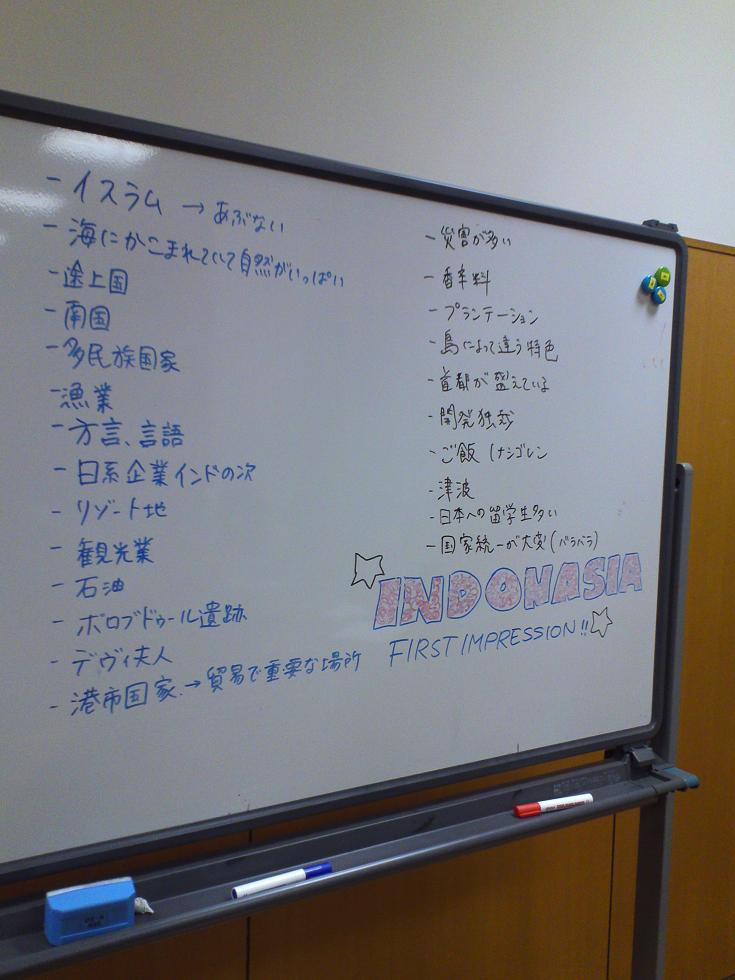 - イスラム → あぶない
- 海にかこまれていて自然がいっぱい
- 途上国
- 南国
- 多民族国家
- 漁業
- 方言、言語
- 日系企業インドの次
- リゾート地
- 観光業
- 石油
- ボロブドゥール遺跡
- デヴィ夫人
- 港市国家 → 貿易で重要な場所
- 災害が多い
- 香辛料
- プランテーション
- 島によって違う特色
- 首都が盛えている
- 開発独裁
- ご飯 (ナシゴレン
- 津波
- 日本への留学生多い
- 国家統一が大変(バラバラ)
INDONASIA
FIRST IMPRESSION!!